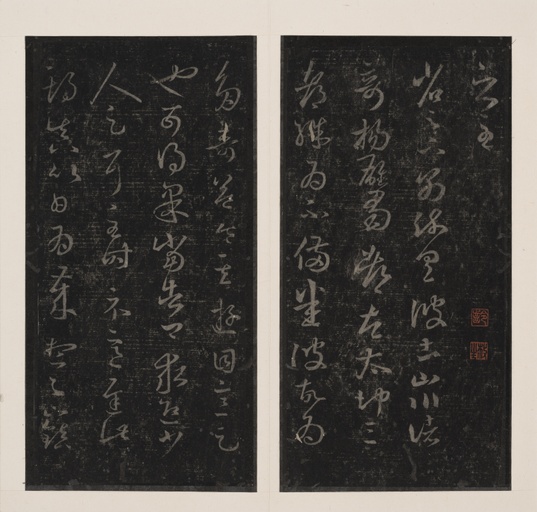 省足下別疏具彼土山川諸
奇揚雄蜀都左太沖三
都殊為不備悉彼故為
多奇益令其游目意足
也可得果當告卿求迎少
人足耳至時示意遲此
期真以日為歲想足下鎮